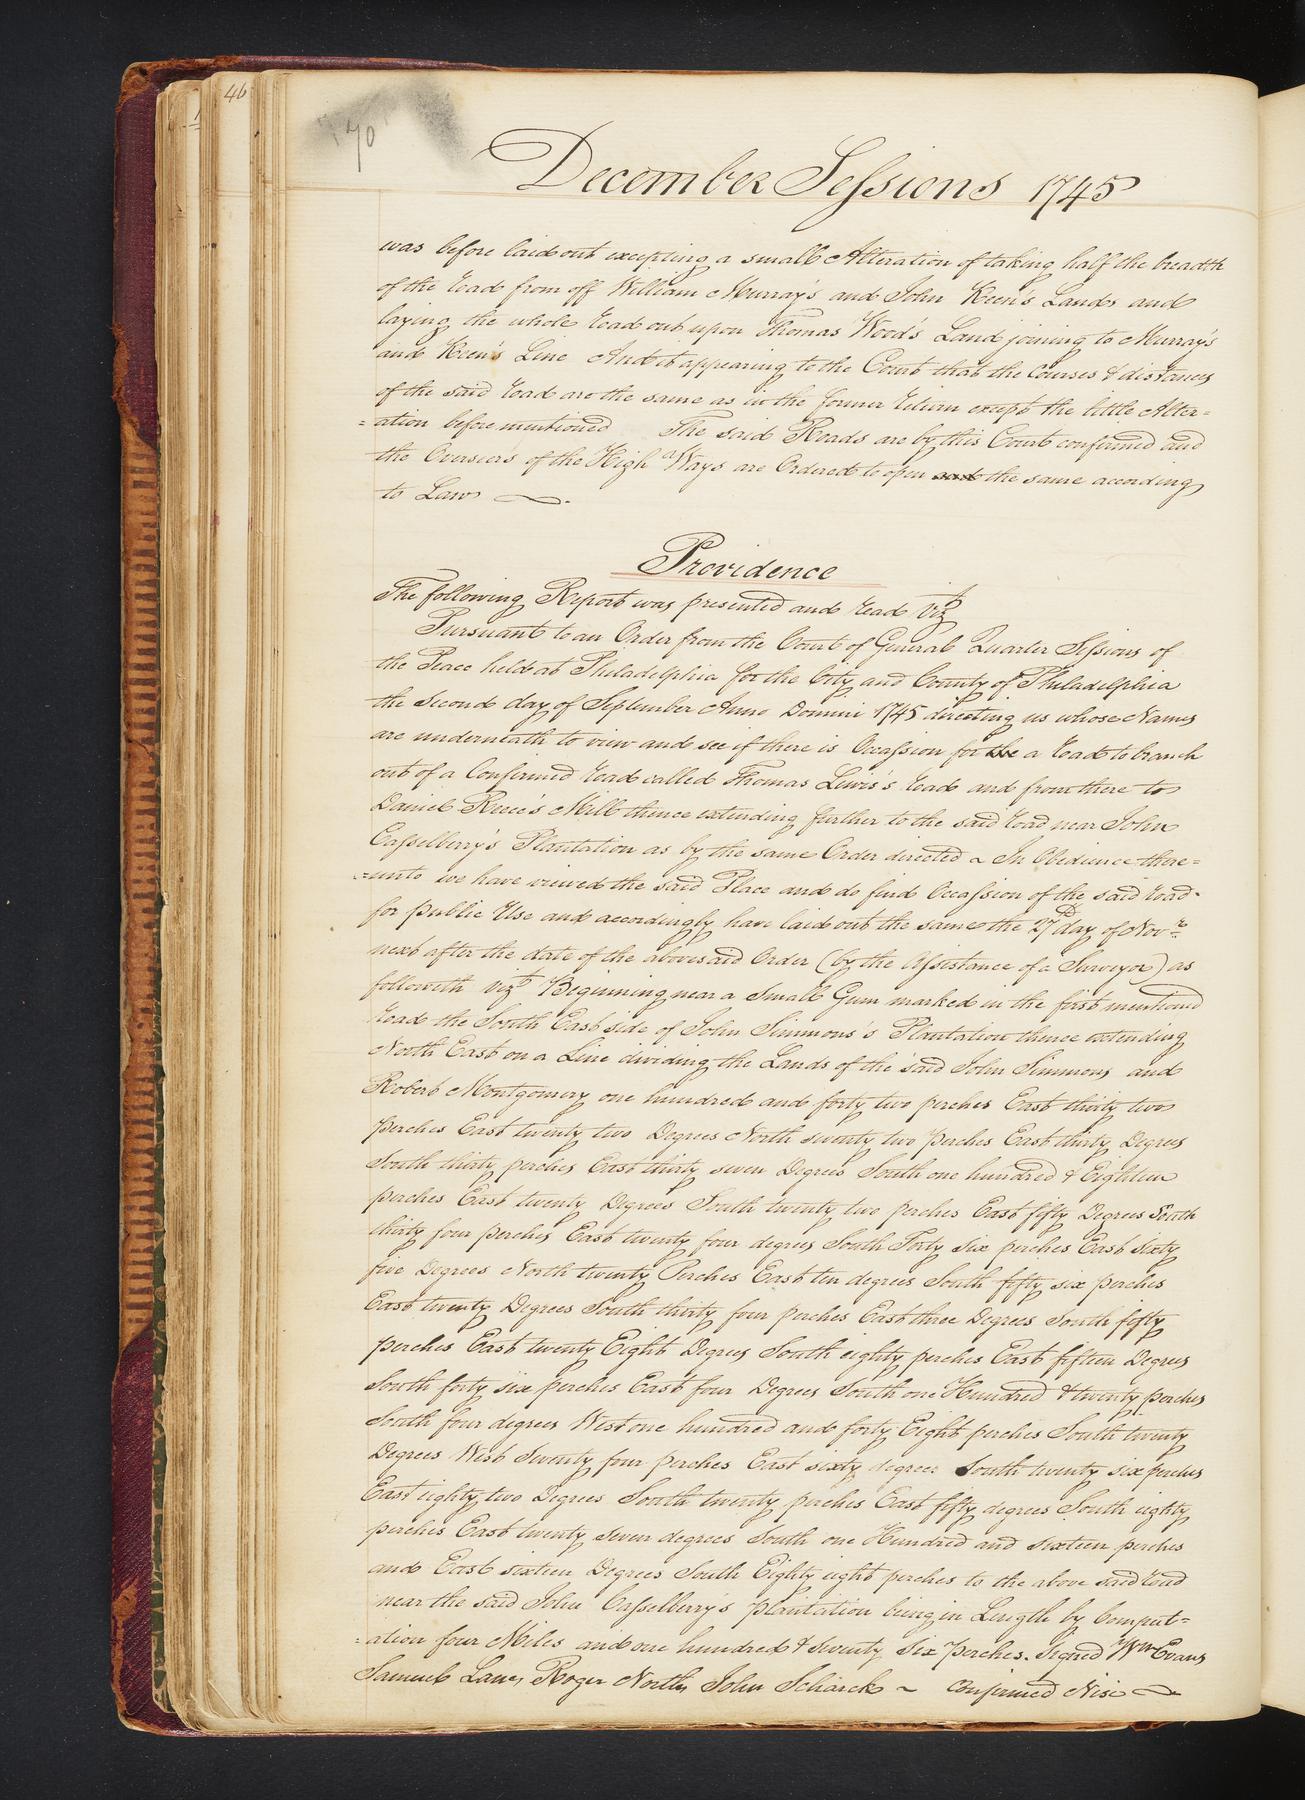 46
70
December Sessions 1745
was before laid out excepting a small Alteration of taking half the breadth
of the road from off William Murray's and John Keen's Lands and
laying the whole road out upon Thomas Wood's Land joining to Murray's
and Keen's Line And it appearing to the Court that the Courses & distances
of the said road are the same as in the former return except the little Alter=
=ation before mentioned The said Roads are by this Court confirmed and
the Overseers of the High Ways are Ordered to open and the same according
to Law
Providence
The following Report was presented and read Vizt
Pursuant to an Order from the Court of General Quarter Sessions of
the Peace held at Philadelphia for the City and County of Philadelphia
the Second day of September Anno Domini 1745 directing us whose Names
are underneath to view and see if there is Occassion for the a road to branch
out of a Confirmed road called Thomas Lewis's road and from there to
Daniel Reese's Mill thence extending further to the said road near John
Casselberry's Plantation as by the same Order directed ~ In Obedience there=
=unto we have viewed the said Place and do find Occassion of the said road
for public Use and accordingly have laid out the same the 27D day of Novr
next after the date of the abovesaid Order (by the Assistance of a Surveyor) as
followeth vizt Beginning near a Small Gum marked in the first mentioned
road the South East side of John Simmons's Plantation thence extending
North East on a Line dividing the Lands of the said John Simmons and
Robert Montgomery one hundred and forty two perches East thirty two
perches East twenty two Degrees North seventy two perches East thirty Degrees
South thirty perches East thirty seven Degrees South one hundred & Eighteen
perches East twenty Degrees South twenty two perches East fifty Degrees South
thirty four perches East twenty four degrees South Forty six perches East sixty
five Degrees North twenty Perches East ten degrees South fifty six perches
East twenty Degrees South thirty four perches East three Degrees South fifty
perches East twenty Eight Degrees South eighty perches East fifteen Degrees
South forty six perches East four Degrees South one Hundred & twenty perches
South four degrees West one hundred and forty Eight perches South twenty
Degrees West Seventy four perches East sixty degrees South twenty six perches
East eighty two Degrees South twenty perches East fifty degrees South eighty
perches East twenty seven degrees South one Hundred and sixteen perches
and East sixteen Degrees South Eighty eight perches to the above said road
near the said John Casselberry's plantation being in Length by Comput=
=ation four Miles and one hundred & Seventy Six Perches. Signed Wm Evans
Samuel Lane, Roger North, John Scharck ~ Confirmed Nisi